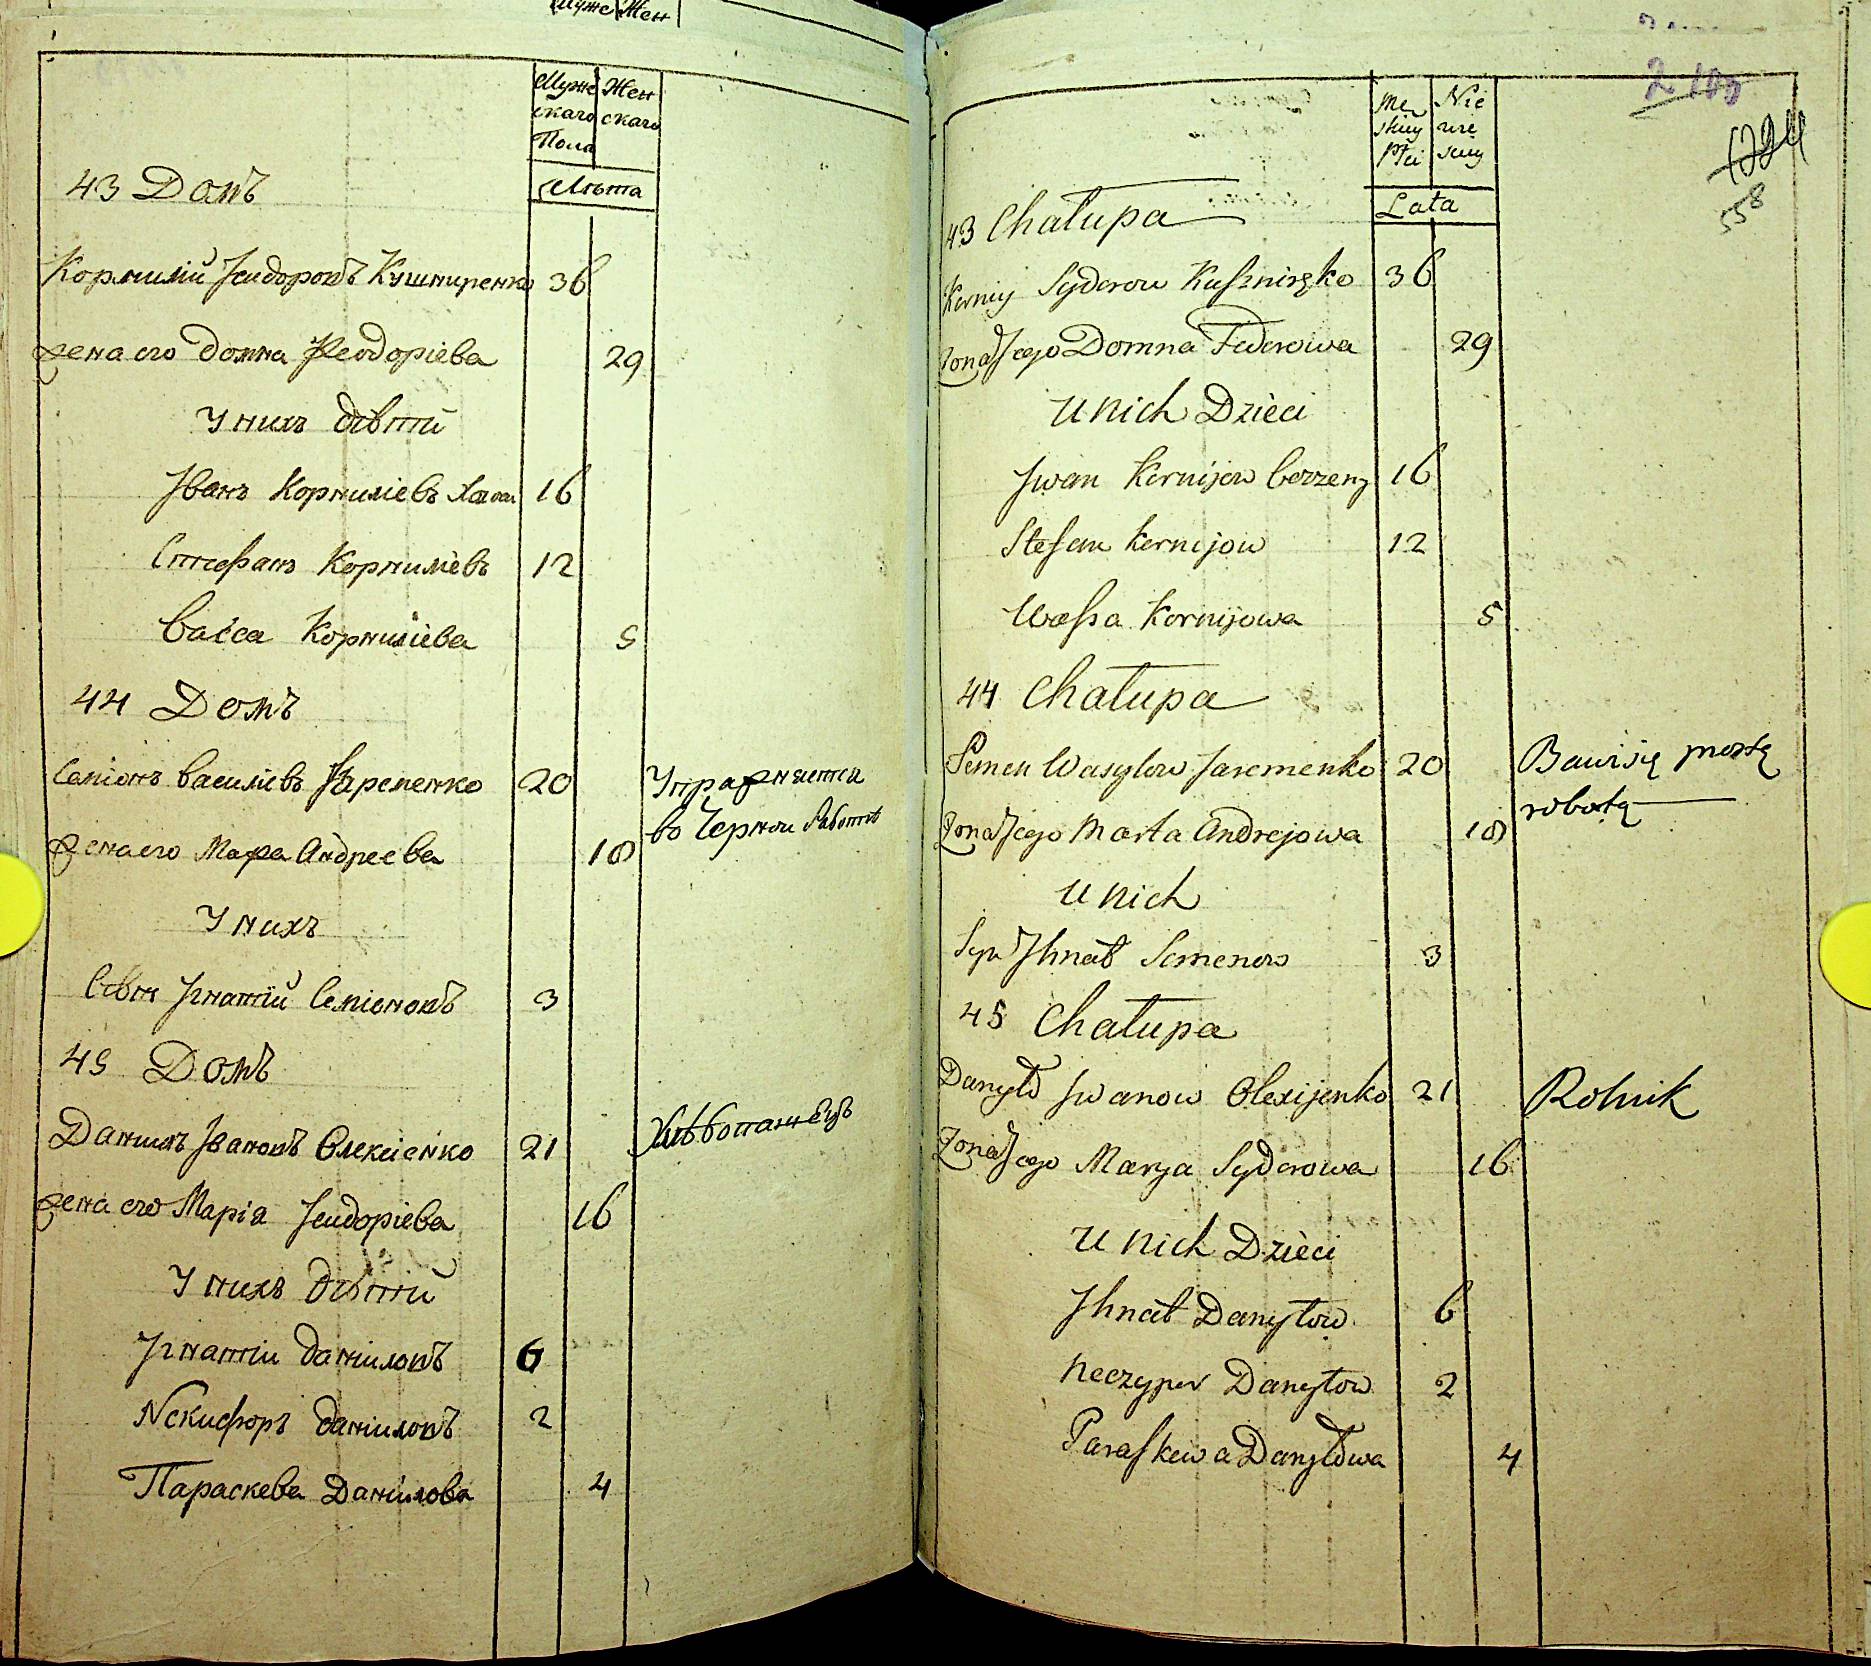 Муже Жен
Муже Жен
скаго скаго
Пола
Лѣта
43 Домъ
Корнилій Ісидоровъ Кушниренко 36
жена его Домна Феодоріева 29
У нихъ дѣтти
Іванъ Корниліевъ 16
Стефанъ Корниліевъ 12
Васса Корниліева 5
44 Домъ
Семіонъ Василіевъ Яременко 20
Упражняется
во Чернои Работѣ
жена его Марфа Андреева 18
У нихъ
Сынъ Ігнатій Семіоновъ 3
45 Домъ
Данилъ Івановъ Олексіенко 21 Хлѣбопашецъ
жена его Марія Ісидоріева 16
У нихъ дѣтти
Ігнатіи Даниловъ 6
Никифоръ Даниловъ 2
Параскева Данилова 4
2 100
58
Mę Nie
skiey wie
Płci sciey
Lata
43 Chałupa
Kerniy Syderow Kuszniręko 36
Zona Jego Domna Federowa 29
U nich Dzieci
Jwan Kernijow 16
Stefan Kernijow 12
Wassa Kornijowa 5
44 Chałupa
Semen Wasylow Jaremenko 20
Bawi się prostą
robotą
Zona Jego Marta Andrejowa 18
U nich
Syn Jhnat Semenow 3
45 Chałupa
Danyło Jwanow Olexijenko 21 Rolnik
Zona Jego Marya Syderowa 16
U nich Dzieci
Jhnat Danyłow 6
Neczypor Danyłow 2
Paraskewa Danyłowa 4